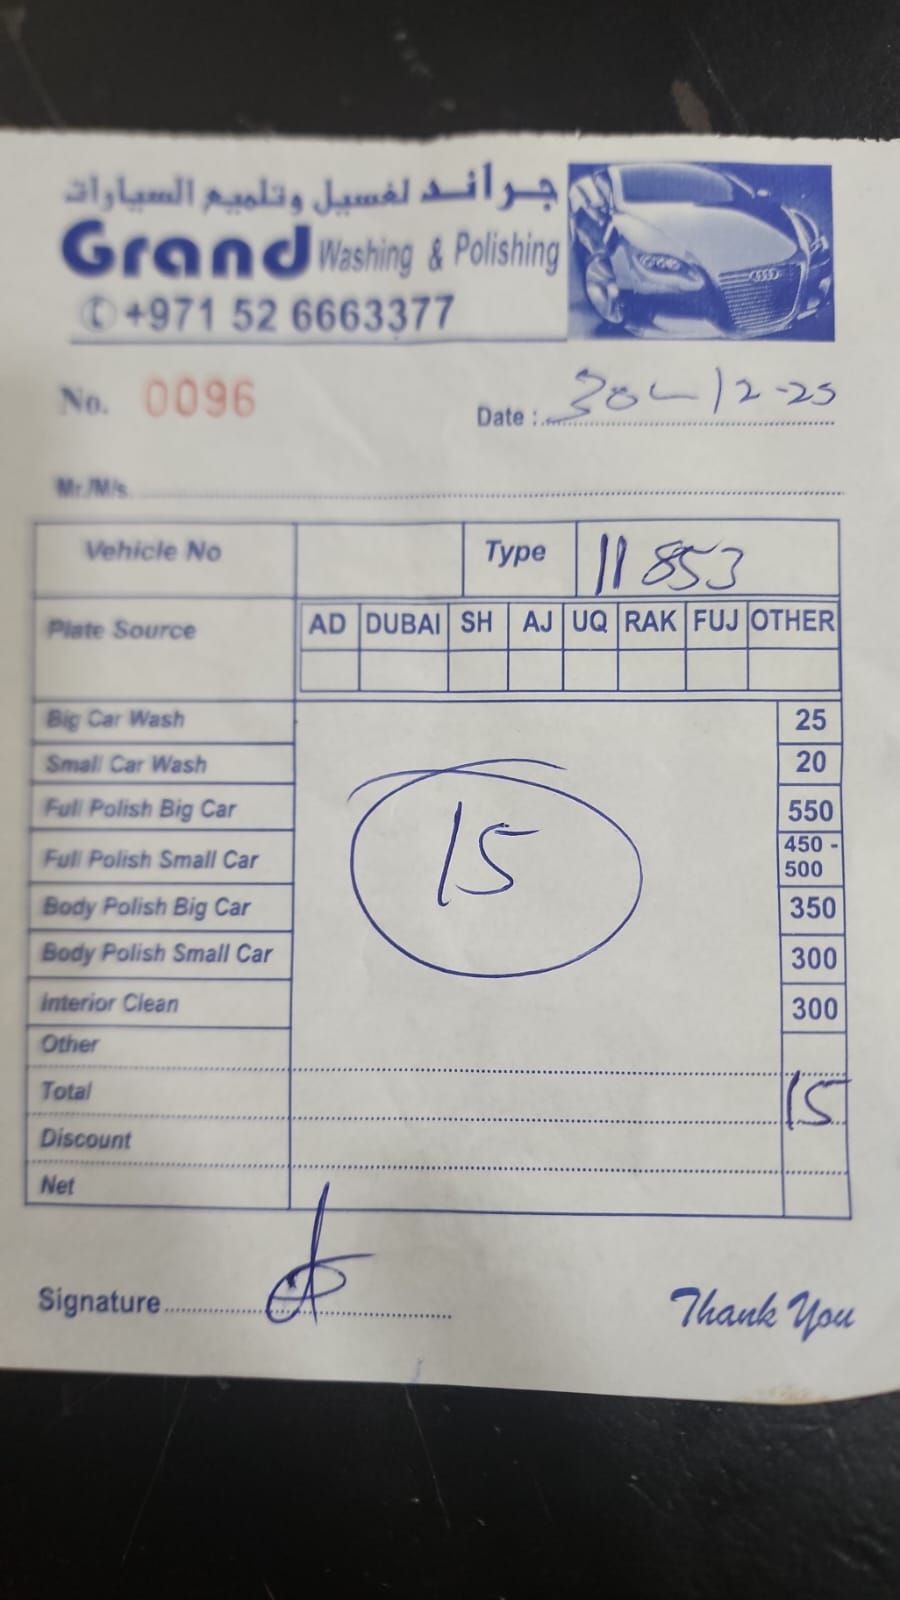 جراند لغسيل وتلميع السيارات
Grand Washing & Polishing
+971 52 6663377
No. 0096
Date : 30-12-25
Mr./M/s.
Vehicle No Type 11853
Plate Source AD DUBAI SH AJ UQ RAK FUJ OTHER
Big Car Wash 25
Small Car Wash 20
Full Polish Big Car 550
Full Polish Small Car 450 - 500
15
Body Polish Big Car 350
Body Polish Small Car 300
Interior Clean 300
Other
Total 15
Discount
Net
Signature
Thank You